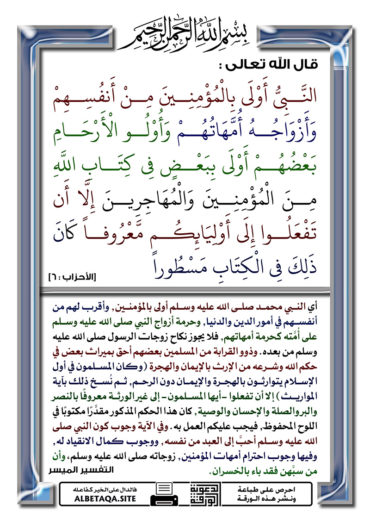 بِسْمِ اللَّهِ الرَّحْمَنِ الرَّحِيمِ
قال الله تعالى :
النَّبِيُّ أَوْلَى بِالْمُؤْمِنِينَ مِنْ أَنفُسِهِمْ
وَأَزْوَاجُهُ أُمَّهَاتُهُمْ وَأُوْلُو الْأَرْحَامِ
بَعْضُهُمْ أَوْلَى بِبَعْضٍ فِي كِتَابِ اللَّهِ
مِنَ الْمُؤْمِنِينَ وَالْمُهَاجِرِينَ إِلَّا أَن
تَفْعَلُوا إِلَى أَوْلِيَائِكُم مَّعْرُوفاً كَانَ
ذَلِكَ فِي الْكِتَابِ مَسْطُوراً
[الأحزاب : ٦]
أي النبي محمد صلى الله عليه وسلم أولى بالمؤمنين, وأقرب لهم من
أنفسهم في أمور الدين والدنيا, وحرمة أزواج النبي صلى الله عليه وسلم
على أُمَّته كحرمة أمهاتهم, فلا يجوز نكاح زوجات الرسول صلى الله عليه
وسلم من بعده. وذوو القرابة من المسلمين بعضهم أحق بميراث بعض في
حكم الله وشرعه من الإرث بالإيمان والهجرة (وكان المسلمون في أول
الإسلام يتوارثون بالهجرة والإيمان دون الرحم, ثم نُسخ ذلك بآية
المواريث) إلا أن تفعلوا -أيها المسلمون- إلى غير الورثة معروفًا بالنصر
والبر والصلة والإحسان والوصية, كان هذا الحكم المذكور مقدَّرًا مكتوبًا في
اللوح المحفوظ, فيجب عليكم العمل به. وفي الآية وجوب كون النبي صلى
الله عليه وسلم أحبَّ إلى العبد من نفسه, ووجوب كمال الانقياد له,
وفيها وجوب احترام أمهات المؤمنين, زوجاته صلى الله عليه وسلم, وأن
من سبَّهن فقد باء بالخسران.
التفسير الميسر
احرص على طباعة
ونشر هذه الورقة
فالدال على الخير كفاعله
ALBETAQA.SITE